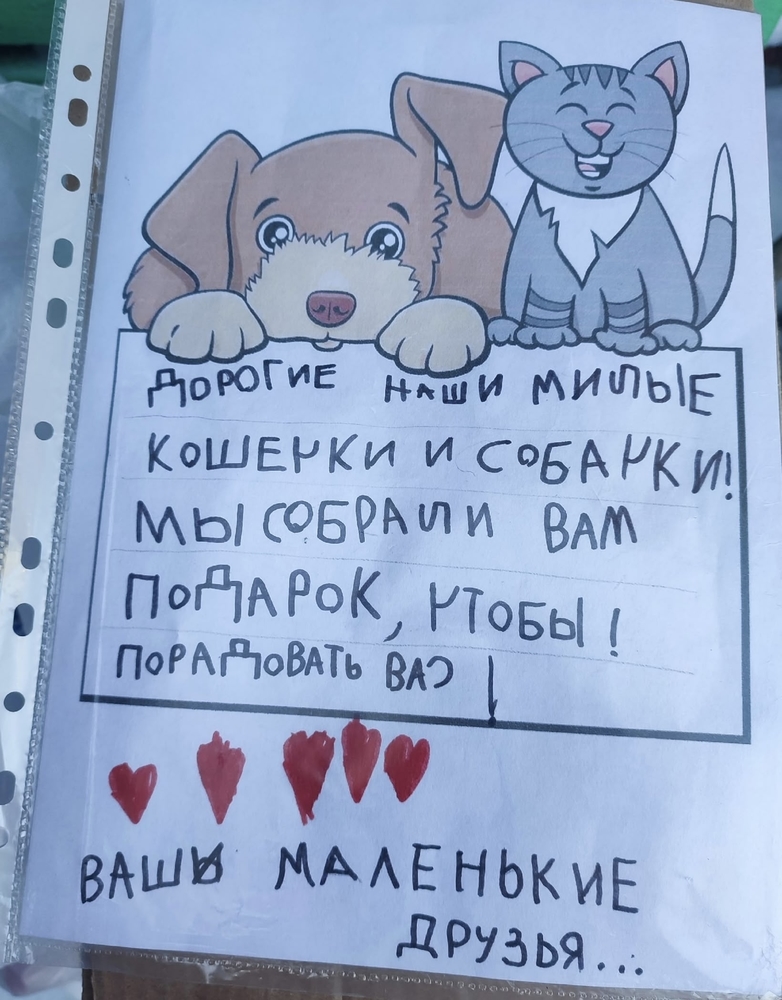 ДОРОГИЕ НАШИ МИЛЫЕ
КОШЕЧКИ И СОБАЧКИ!
МЫ СОБРАЛИ ВАМ
ПОДАРОК, ЧТОБЫ!
ПОРАДОВАТЬ ВАС!
ВАШИ МАЛЕНЬКИЕ
ДРУЗЬЯ...